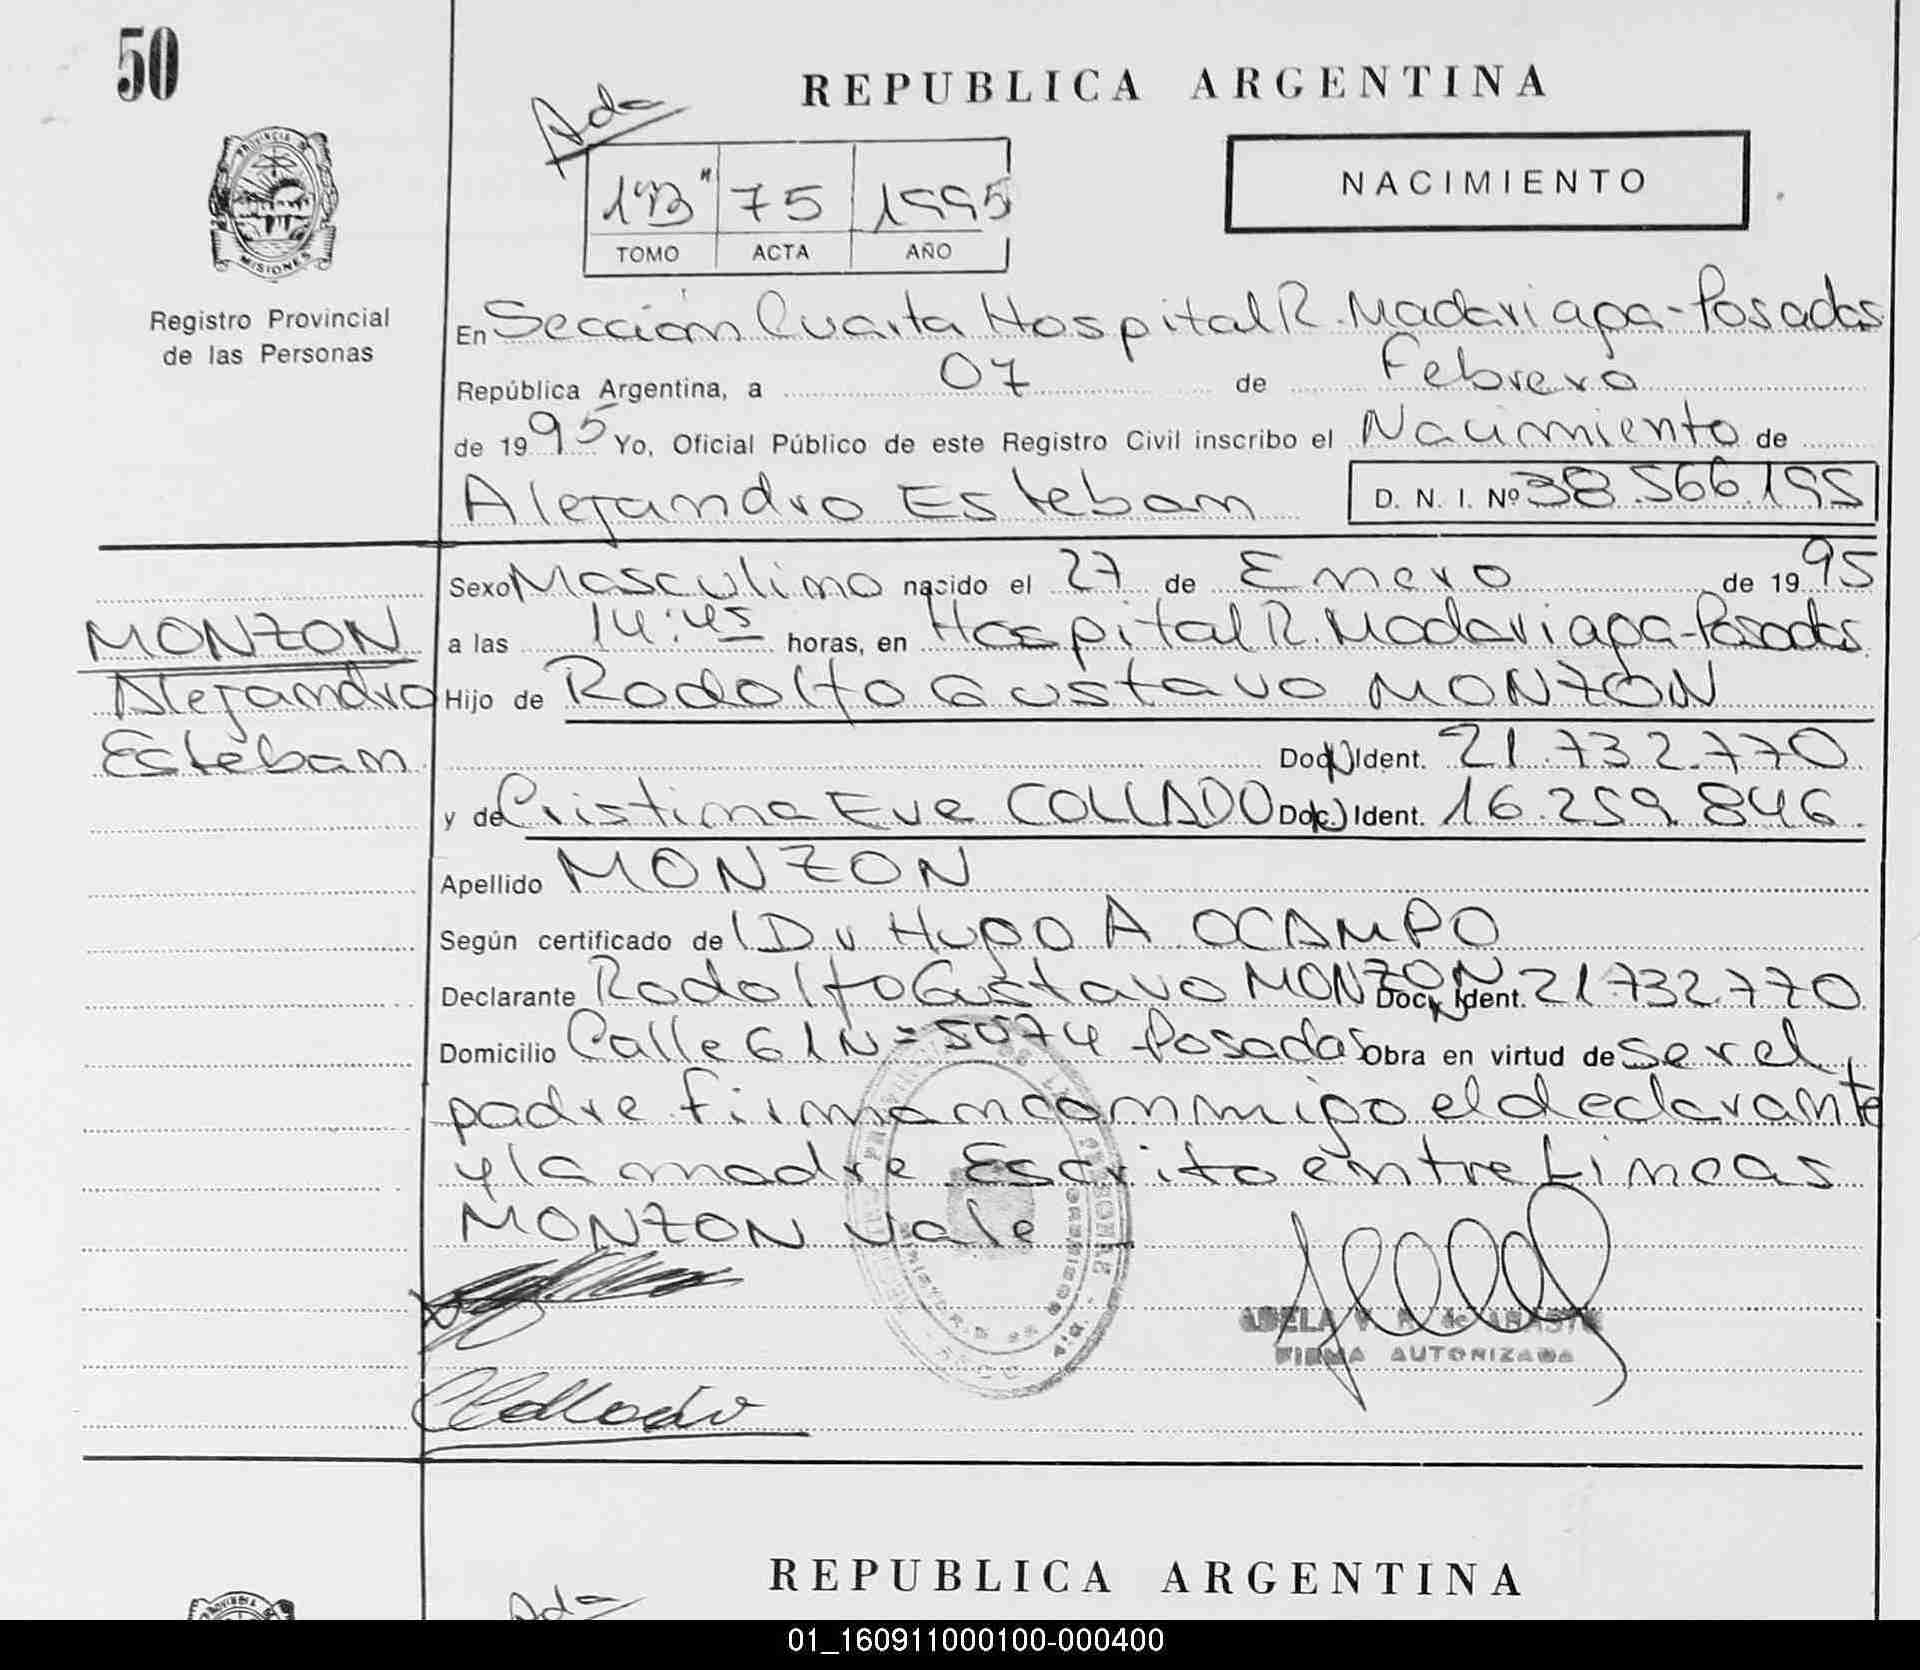 50
REPUBLICA ARGENTINA
Ada
PROVINCIA DE
MISIONES
75 1995
TOMO ACTA AÑO
NACIMIENTO
Registro Provincial
de las Personas
En Sección Cuarta Hospital R. Madariaga - Posadas
República Argentina, a 07 de Febrero
de 1995 Yo, Oficial Público de este Registro Civil inscribo el Nacimiento de
Alejandro Esteban D. N. I. Nº 38.566.195
Sexo Masculino nacido el 27 de Enero de 1995
MONZON
Alejandro
Esteban
a las 14:45 horas, en Hospital R. Madariaga - Posadas
Hijo de Rodolfo Gustavo MONZON
Doc. Ident. 21.732.770
y de Cristina Eve COLLADO Doc. Ident. 16.259.846
Apellido MONZON
Según certificado de Dr Hugo A OCAMPO
Declarante Rodolfo Gustavo MONZON Doc. Ident. 21.732.770
Domicilio Calle 61 Nº 5074 Posadas Obra en virtud de ser el
padre firman conmigo el declarante
y la madre Escrito entre Lineas
MONZON vale
ADELA
FIRMA AUTORIZADA
CCollado
REPUBLICA ARGENTINA
Ada
01_160911000100-000400